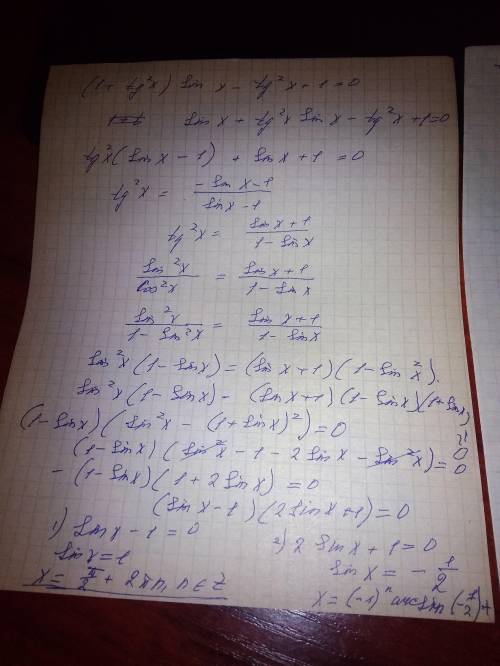 (1 + tg²x) Sin x - tg²x + 1 = 0
Sin x + tg²x Sin x - tg²x + 1 = 0
tg²x (Sin x - 1) + Sin x + 1 = 0
tg²x = (-Sin x - 1) / (Sin x - 1)
tg²x = (Sin x + 1) / (1 - Sin x)
Sin²x / Cos²x = (Sin x + 1) / (1 - Sin x)
Sin²x / (1 - Sin²x) = (Sin x + 1) / (1 - Sin x)
Sin²x (1 - Sin x) = (Sin x + 1) (1 - Sin²x).
Sin²x (1 - Sin x) - (Sin x + 1) (1 - Sin x) (1 + Sin x) = 0
(1 - Sin x) (Sin²x - (1 + Sin x)²) = 0
(1 - Sin x) (Sin²x - 1 - 2 Sin x - Sin²x) = 0
- (1 - Sin x) (1 + 2 Sin x) = 0
(Sin x - 1) (2 Sin x + 1) = 0
1) Sin x - 1 = 0
Sin x = 1
x = π/2 + 2πn, n ∈ Z
2) 2 Sin x + 1 = 0
Sin x = - 1/2
x = (-1)ⁿ arcSin (-1/2) +